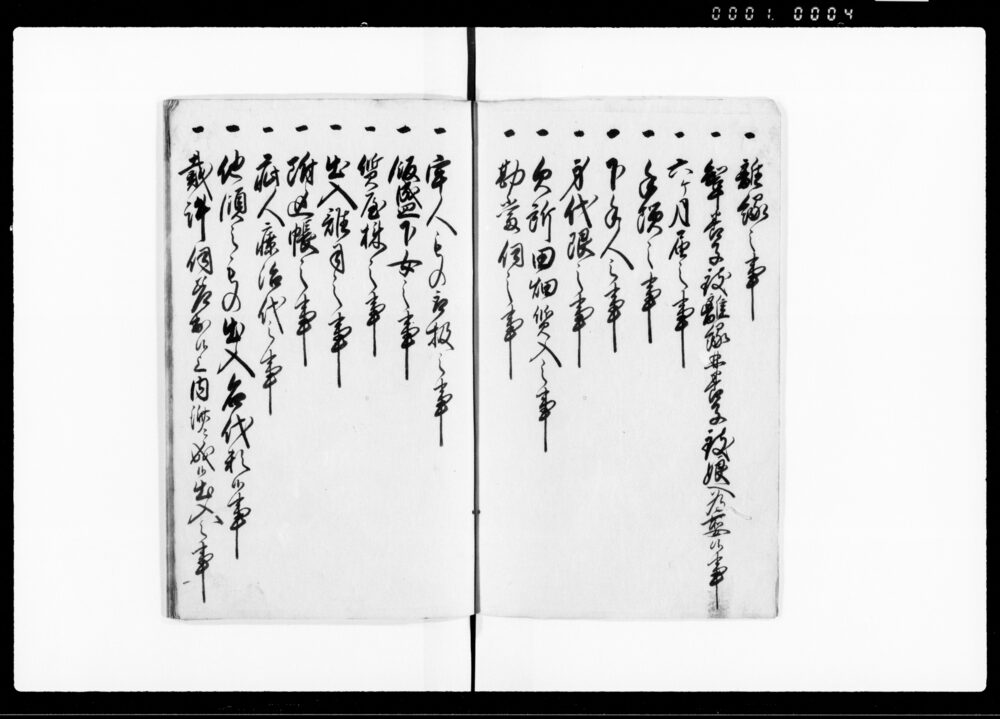 0001. 0004
一 離縁之事
一 聟養子致離縁并養子致娘入為娶候事
一 六ヶ月届之事
一 手鎖之事
一 下手人之事
一 身代限之事
一 欠所田畑質入之事
一 勘当伺之事
一 宰人もの取扱之事
一 飯盛下女之事
一 質屋株之事
一 出入雑用之事
一 附込帳之事
一 病人療治代之事
一 他領之もの出入名代願候事
一 裁許伺差出候上内済ニ成候出入之事